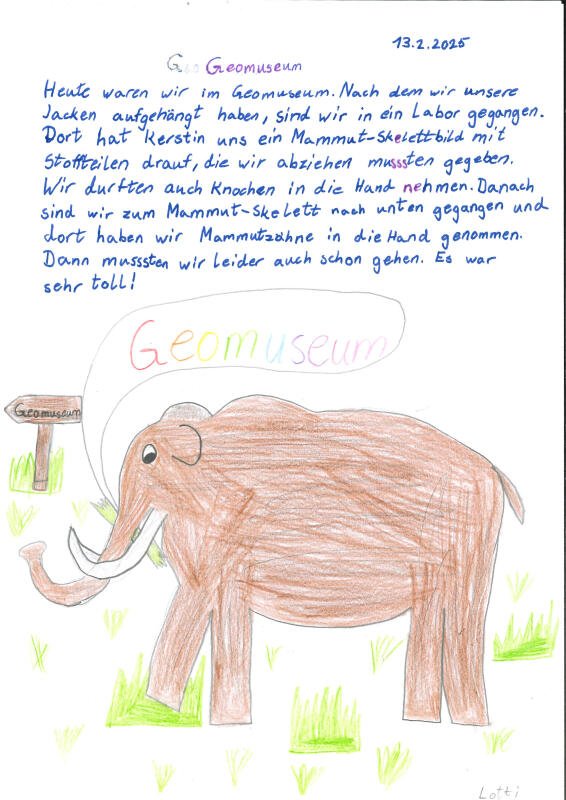 13.2.2025
Geo Geomuseum
Heute waren wir im Geomuseum. Nach dem wir unsere
Jacken aufgehängt haben, sind wir in ein Labor gegangen.
Dort hat Kerstin uns ein Mammut-Skelettbild mit
Stoffteilen drauf, die wir abziehen mussten gegeben.
Wir durften auch Knochen in die Hand nehmen. Danach
sind wir zum Mammut-Skelett nach unten gegangen und
dort haben wir Mammutzähne in die Hand genommen.
Dann musssten wir leider auch schon gehen. Es war
sehr toll!
Geomuseum
Geomuseum
Lotti